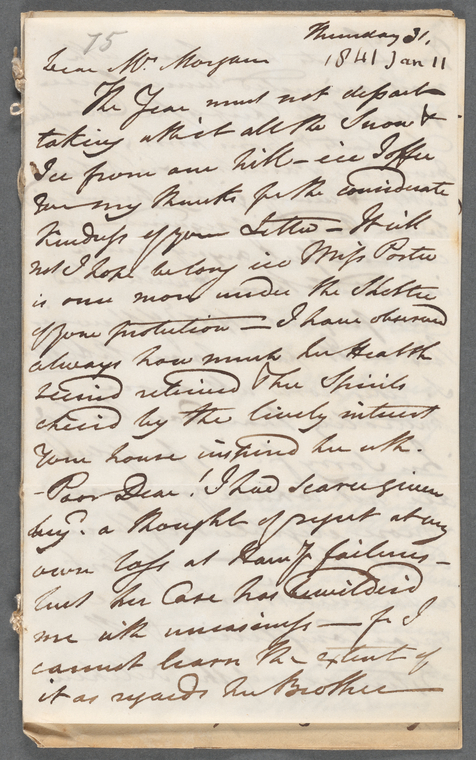 75
Thursday 31,
1841 Jan 11
Dear Mr Morgan
The Year must not depart
taking with it all the Snow &
Ice from our hill – ere I offer
you my thanks for the considerate
Kindness of your Letter – It will
not I hope be long ere Miss Porter
is once more under the Shelter
of your protection – I have observed
always how much her Health
seemd retrieved The Spirits
cheer'd by the lively interest
Your house inspired her with.
– Poor Dear! I had scarce given
a thought of regret at my
own loss at failures –
but her Case has bewilder'd
me with uneasiness – for I
cannot learn the extent of
it as regards her Brother –